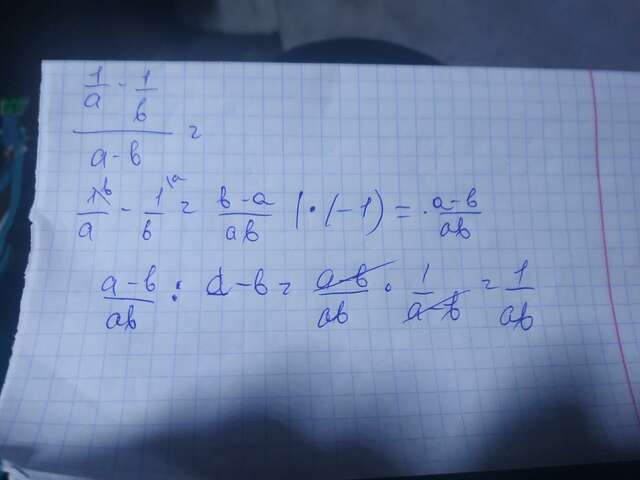 1/a - 1/b
a-b =
1\b/a - 1\a/b = b-a/ab |·(-1) = a-b/ab
a-b/ab : a-b = a-b/ab · 1/a-b = 1/ab